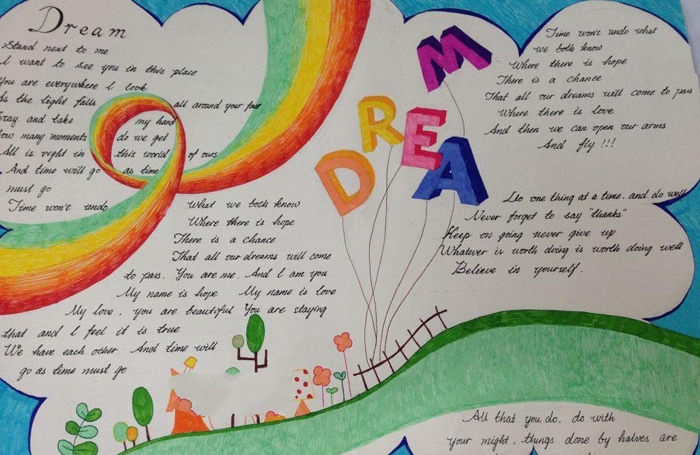 Dream
Stand next to me
I want to see you in this place
You are everywhere I look
As the light falls all around your face
Pray and take my hand
How many moments do we get
All is right in this world of ours
And time will go as time
must go
Time won't undo
What we both know
Where there is hope
There is a chance
That all our dreams will come
to pass. You are me. And I am you
My name is hope My name is love
My love, you are beautiful You are staying
that and I feel it is true
We have each other And time will
go as time must go
DREAM
Time won't undo what
we both know
Where there is hope
There is a chance
That all our dreams will come to pass
Where there is love
And then we can open our arms
And fly!!!
Do one thing at a time, and do well
Never forget to say "thanks"
Keep on going never give up
Whatever is worth doing is worth doing well
Believe in yourself.
All that you do, do with
your might, things done by halves are